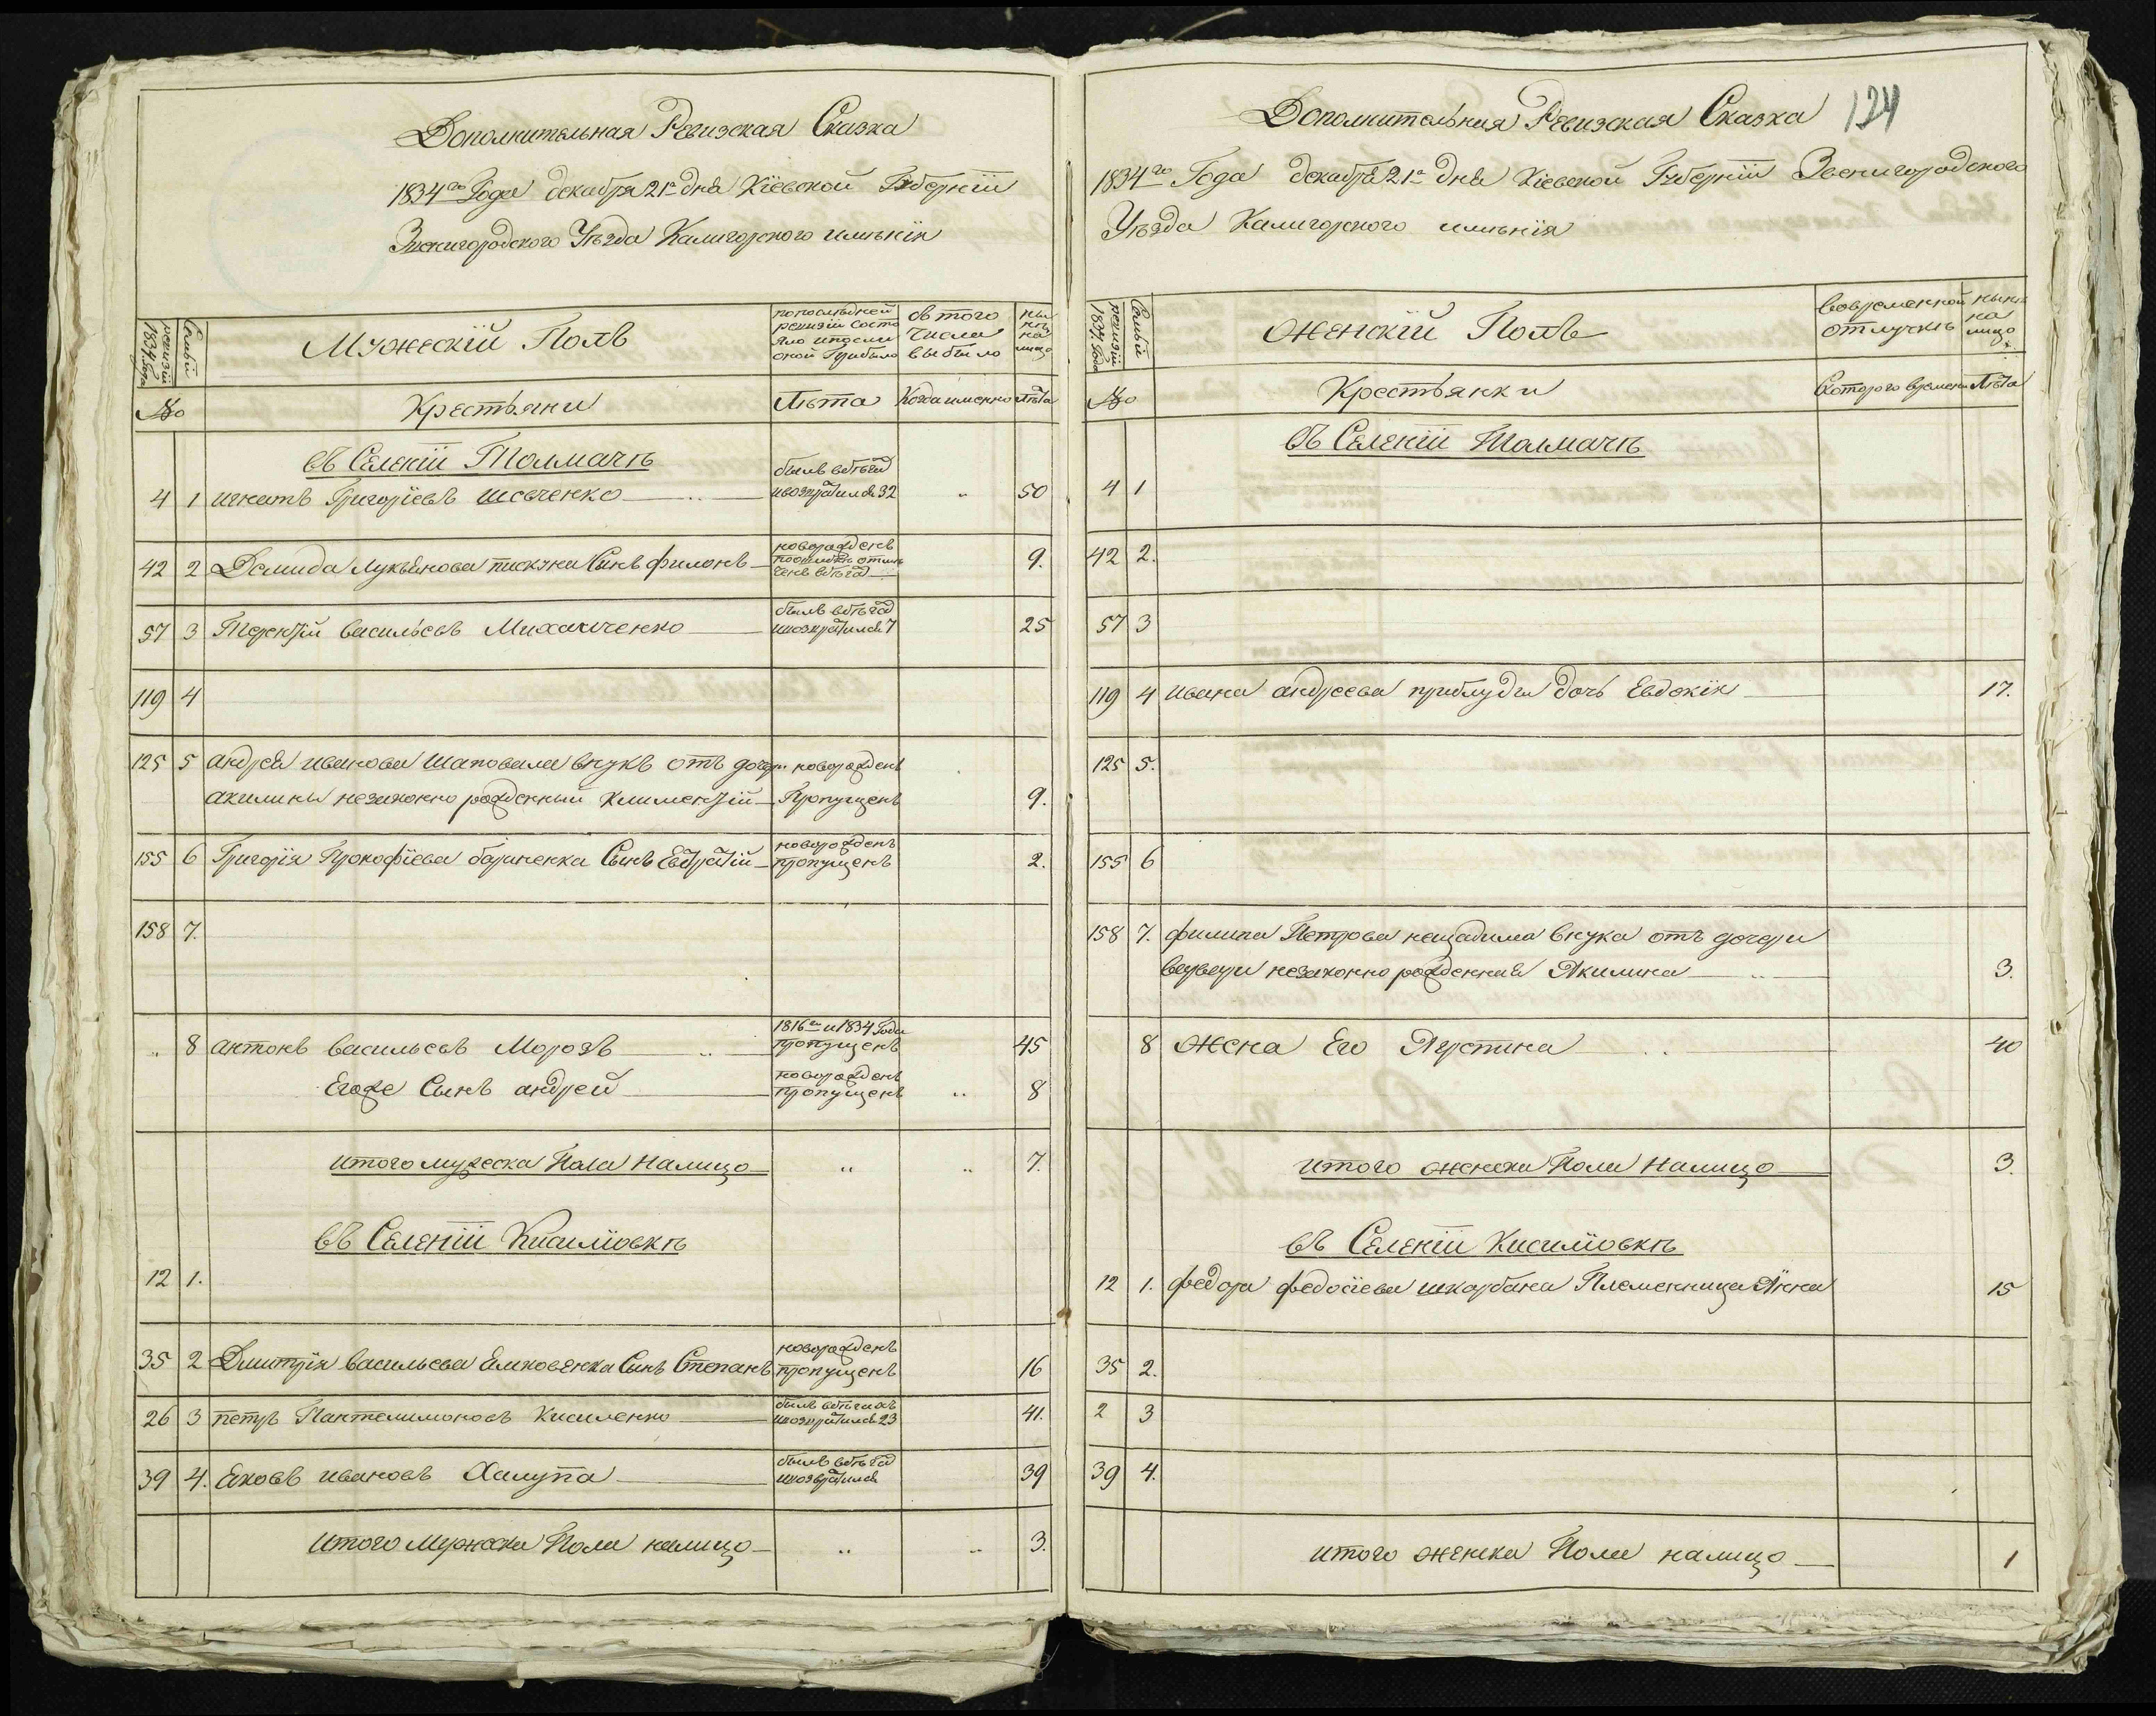 Дополнительная Ревизская Сказка
1834го Года декабря 21го дня Кіевской Губерніи
Звенигородского Уѣзда Калигорского имѣнія
Семьи ревизіи 1834. года
Мужескій Полъ
попослѣдней ревизіи состояло ипослѣ оной Прибыло
съ того числа выбыло
нынѣ на лицо
№
Крестьяни
Лѣта
Когда именно
Лѣта
въ Селеніи Толмачѣ
4 1 игнатъ Григоріевъ шевченко былъ вбѣгахъ ивозвратился 32 " 50
42 2 Демида лукьянова пискуна Сынъ филонъ новорожденъ 9.
57 3 Терентій васильевъ Михайленко былъ вбѣгахъ ивозвратился 7 25
119 4
125 5 андрея иванова Шаповала внукъ отъ дочери новорожденъ
акилины незаконно рожденный климентій Пропущенъ 9.
155 6 Григорія Прокофіева Сынъ Евстратій новорожденъ пропущенъ 2.
158 7.
" 8 антонъ васильевъ Морозъ 1816го и 1834 Года пропущенъ 45
Егоже Сынъ андрей новорожденъ пропущенъ " 8
итого мужеска Пола Налицо " " 7.
въ Селеніи Кисиліовкѣ
12 1.
35 2 Дмитрія васильева Сынъ Степанъ новорожденъ пропущенъ 16
26 3 петръ Пантелимоновъ Кисиленко былъ вбѣгахъ ивозвратился 23 41.
39 4. Яковъ ивановъ Халупа былъ вбѣгахъ ивозвратился 39
Итого Мужеска Пола налицо " " 3.
124
Дополнительная Ревизская Сказка
1834го Года декабря 21го дня Кіевской Губерніи Звенигородского
Уѣзда Калигорского имѣнія
Семьи ревизіи 1834. года
Женскій Полъ
Вовременной отлучкѣ
нынѣ на лицо
№
Крестьянки
Скоторого времени
Лѣта
въ Селеніи Толмачѣ
4 1
42 2.
57 3
119 4 ивана андреева приблуды дочь Евдокія 17.
125 5.
155 6
158 7. филипа Петрова нещадима внука отъ дочери
варвары незаконно рожденная Акилина 3.
8 Жена Его Агустина 40
итого женска Пола Налицо 3.
въ Селеніи Кисиліовкѣ
12 1. федора федосіева шкарбана Племенница Анна 15
35 2.
2 3
39 4.
итого женска Пола налицо 1